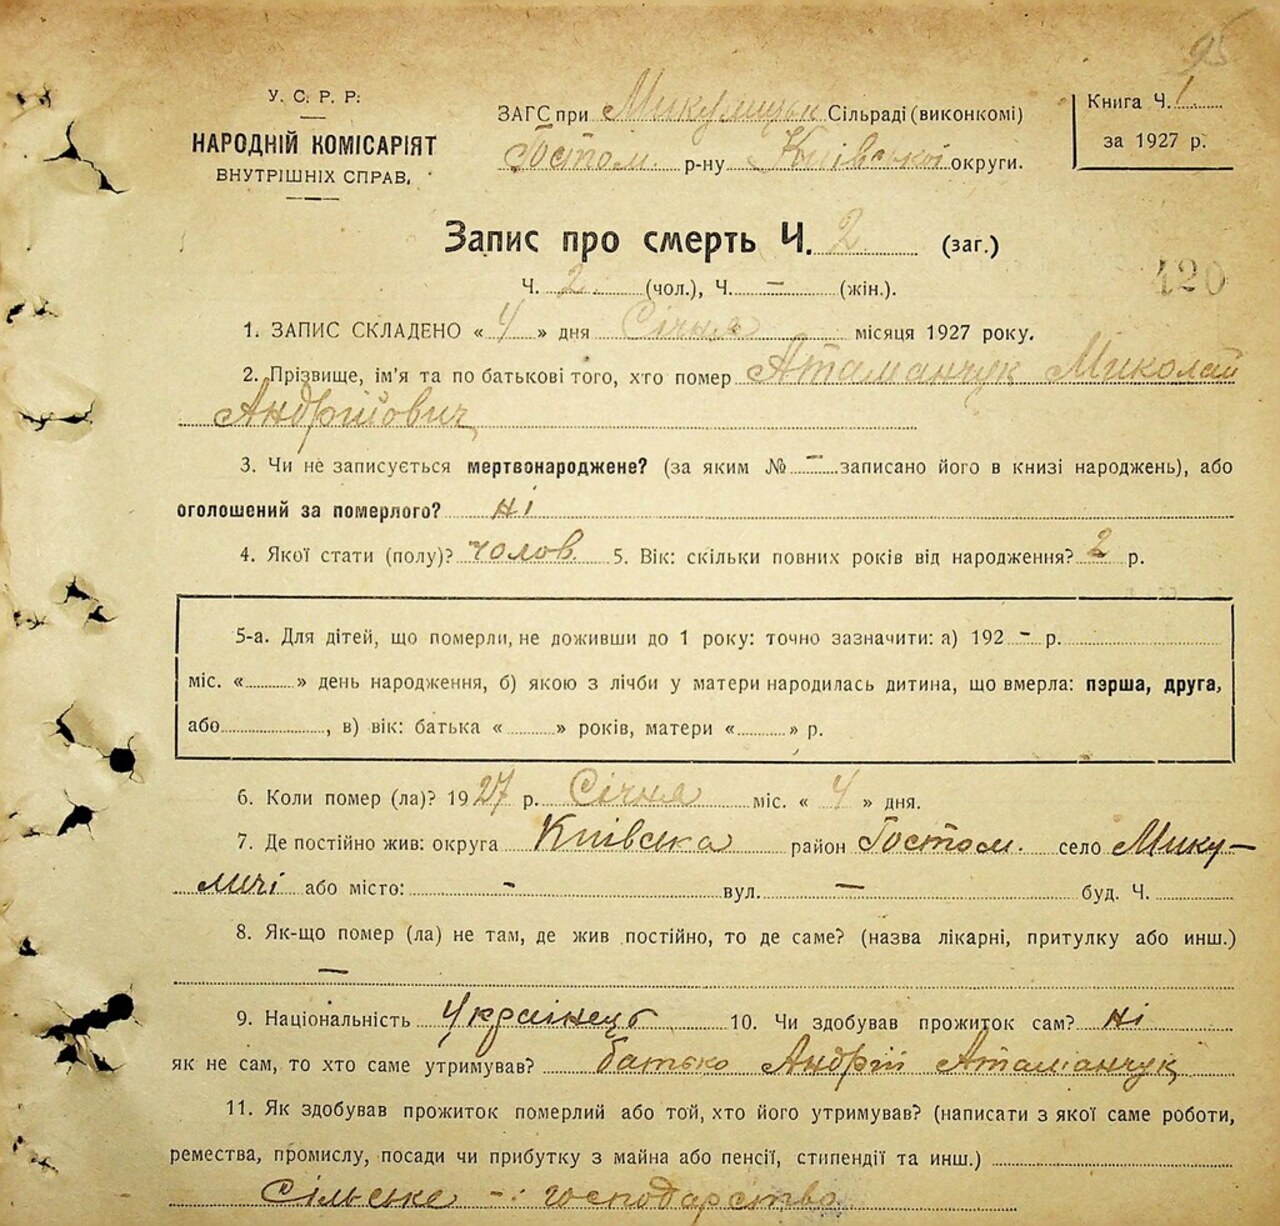 95
У. С. Р. Р.
НАРОДНІЙ КОМІСАРІЯТ
ВНУТРІШНІХ СПРАВ.
ЗАГС при Микулицьк Сільраді (виконкомі)
Гостом. р-ну Київської округи.
Книга Ч. 1
за 1927 р.
Запис про смерть Ч. 2 (заг.)
Ч. 2 (чол.), Ч. – (жін.).
420
1. ЗАПИС СКЛАДЕНО « 4 » дня Січня місяця 1927 року.
2. Прізвище, ім'я та по батькові того, хто помер Атаманчук Миколай
Андрійович
3. Чи не записується мертвонароджене? (за яким № – записано його в книзі народжень), або
оголошений за померлого? ні
4. Якої стати (полу)? чолов. 5. Вік: скільки повних років від народження? 2 р.
5-а. Для дітей, що померли, не доживши до 1 року: точно зазначити: а) 192 – р.
міс. « » день народження, б) якою з лічби у матери народилась дитина, що вмерла: пэрша, друга,
або , в) вік: батька « » років, матери « » р.
6. Коли помер (ла)? 1927 р. Січня міс. « 4 » дня.
7. Де постійно жив: округа Київська район Гостом. село Мику–
личі або місто: – вул. – буд. Ч.
8. Як-що помер (ла) не там, де жив постійно, то де саме? (назва лікарні, притулку або инш.)
–
9. Національність Українець 10. Чи здобував прожиток сам? ні
як не сам, то хто саме утримував? батько Андрій Атаманчук
11. Як здобував прожиток померлий або той, хто його утримував? (написати з якої саме роботи,
ремества, промислу, посади чи прибутку з майна або пенсії, стипендії та инш.)
Сільське – господарство